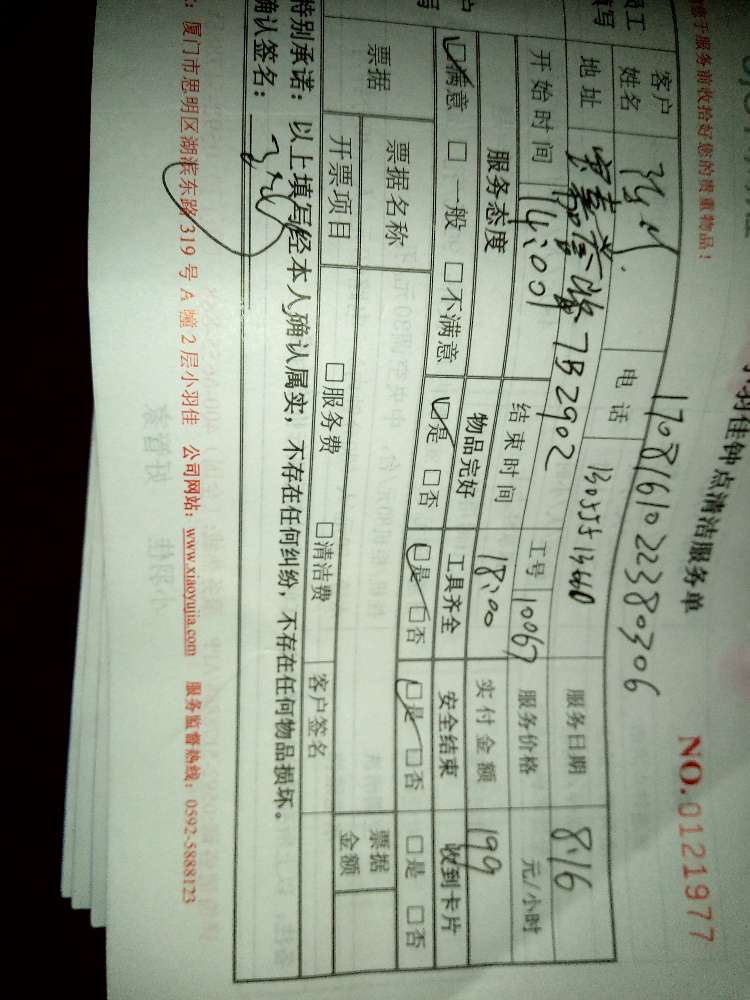 小羽佳钟点清洁服务单 NO.0121977
服务前收拾好您的贵重物品！ 170816102238 0306
客户姓名 电话 服务日期 8.16
地址 7B2902 工号 10067 服务价格 元/小时
开始时间 14:00 结束时间 18:00 实付金额 199
服务态度 物品完好 工具齐全 安全结束 收到卡片
☑满意 □一般 □不满意 ☑是 □否 ☑是 □否 ☑是 □否 □是 □否
票据 票据名称 票据金额
开票项目 □服务费 □清洁费 客户签名
特别承诺：以上填写经本人确认属实，不存在任何纠纷，不存在任何物品损坏。
确认签名：
厦门市思明区湖滨东路319号A幢2层小羽佳 公司网站：www.xiaoyujia.com 服务监督热线：0592-5888123